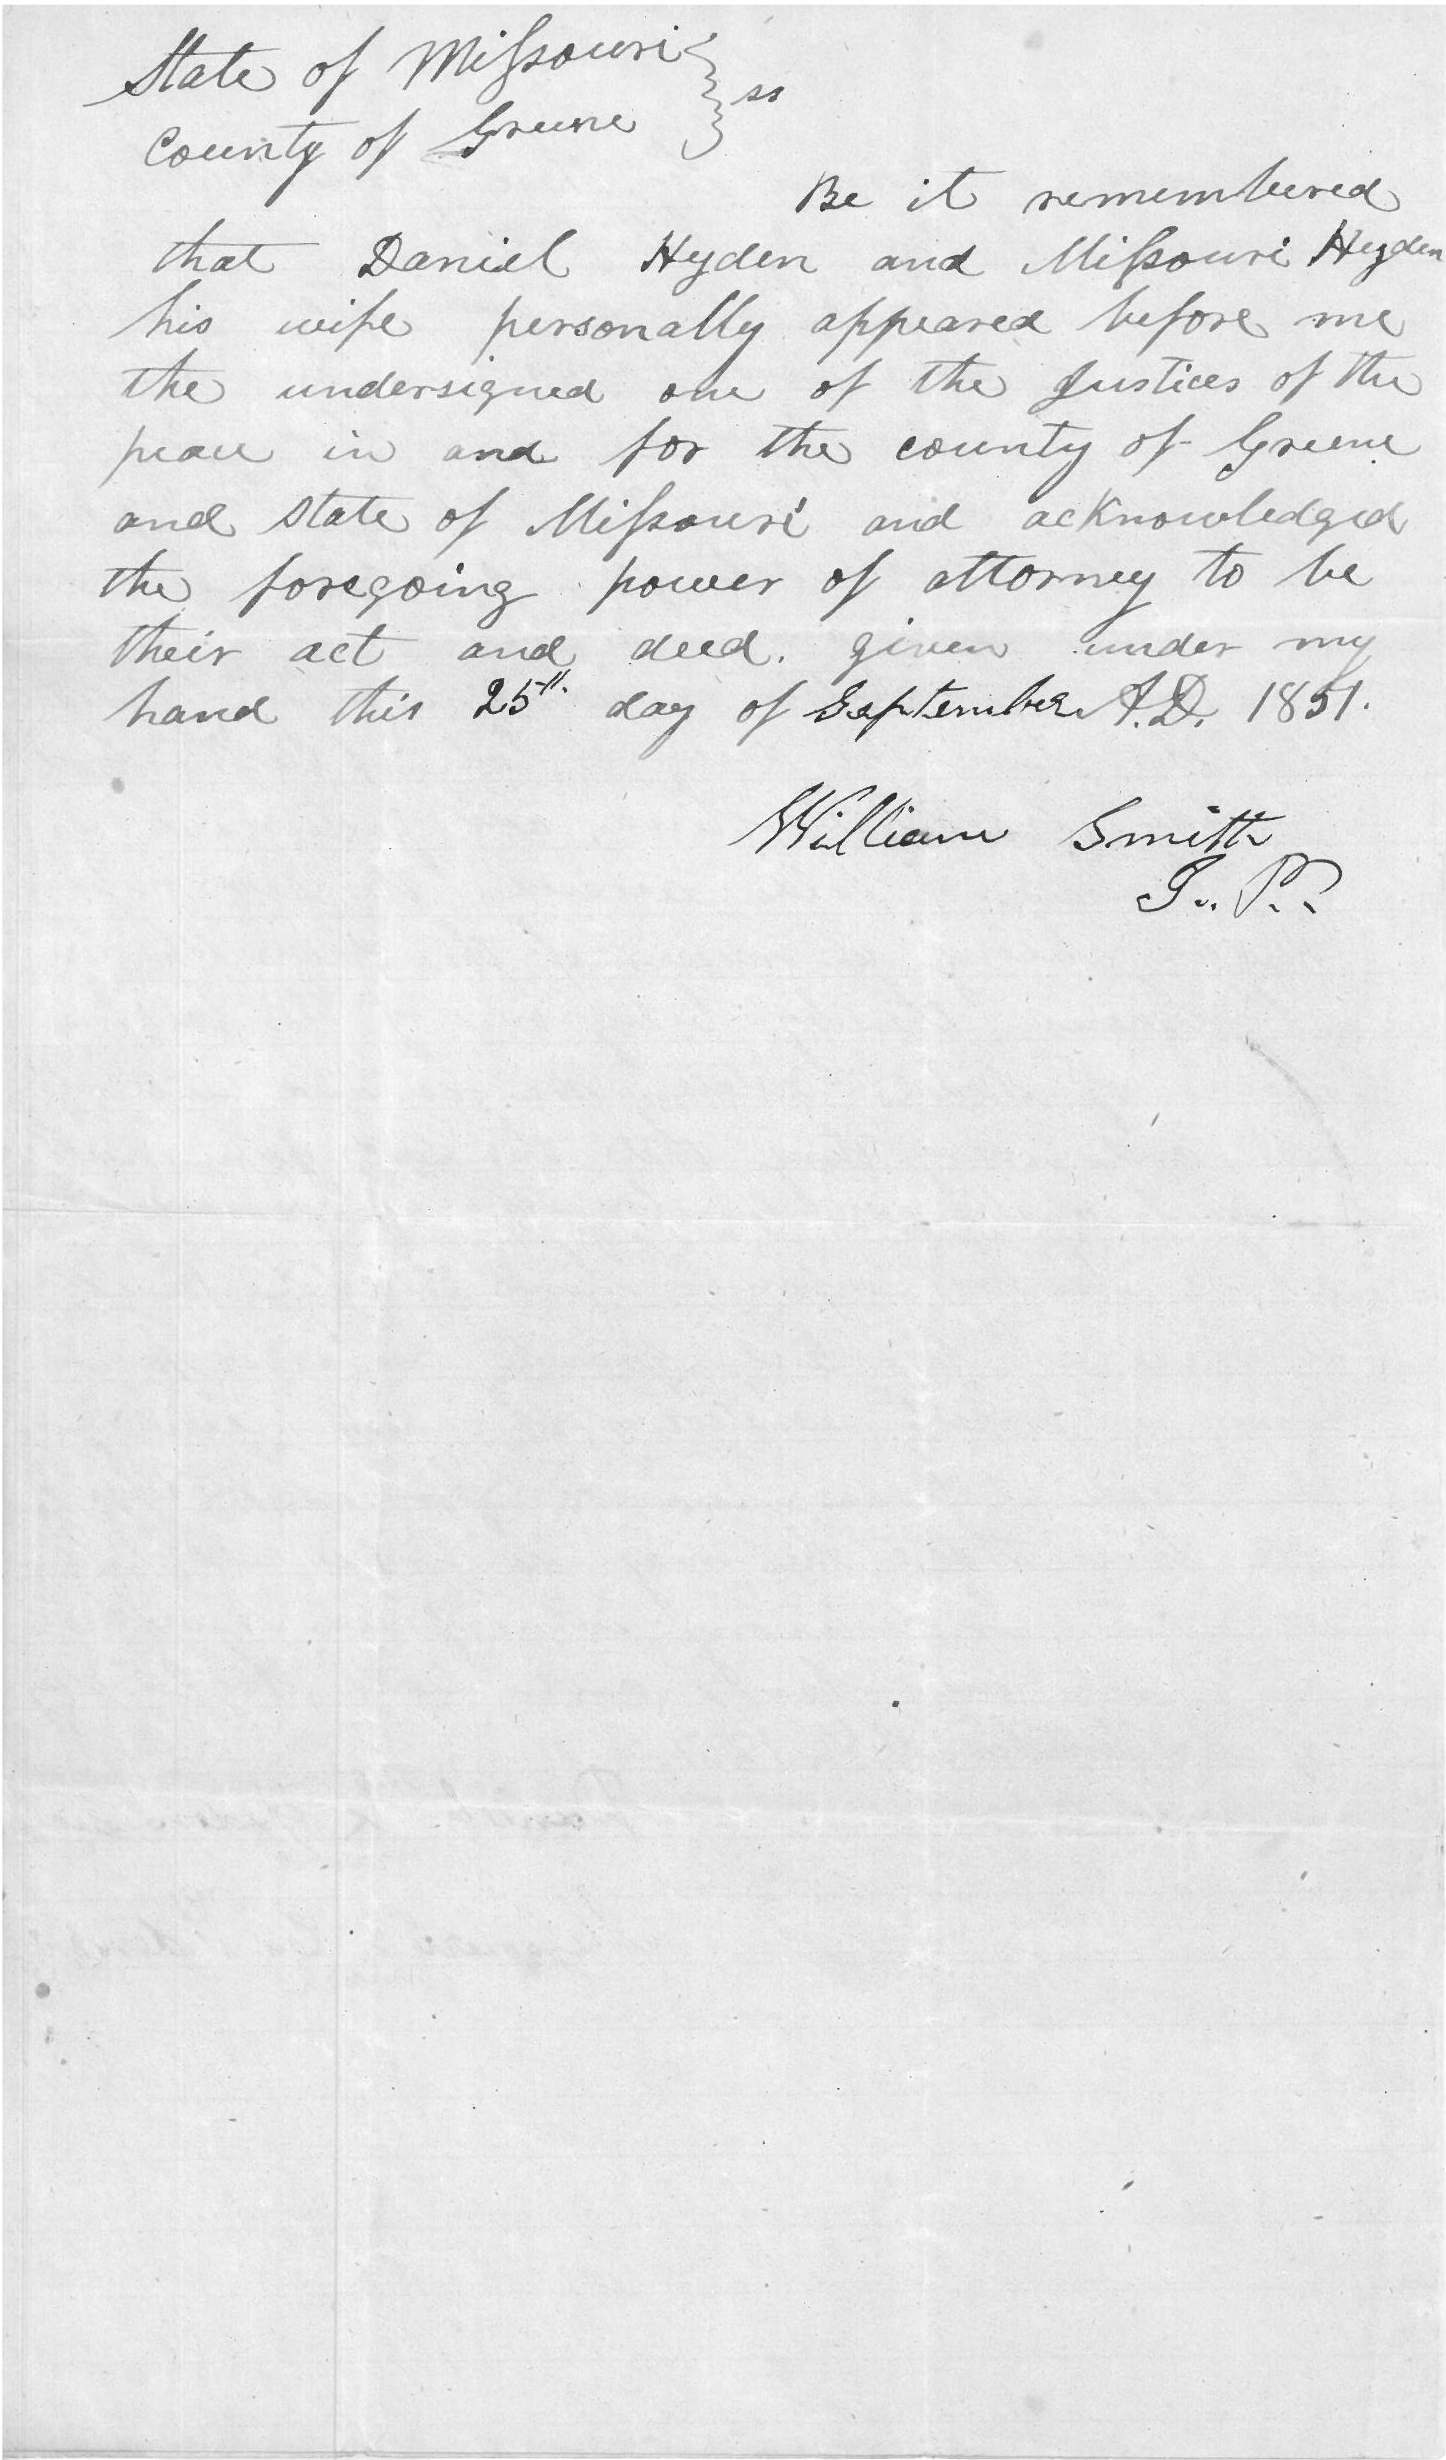 State of Missouri } ss
County of Greene
Be it remembered
that Daniel Hyden and Missouri Hyden
his wife personally appeared before me
the undersigned one of the Justices of the
peace in and for the county of Greene
and State of Missouri and acknowledged
the foregoing power of attorney to be
their act and deed. given under my
hand this 25th. day of September A.D. 1851.
William Smith
J. P.